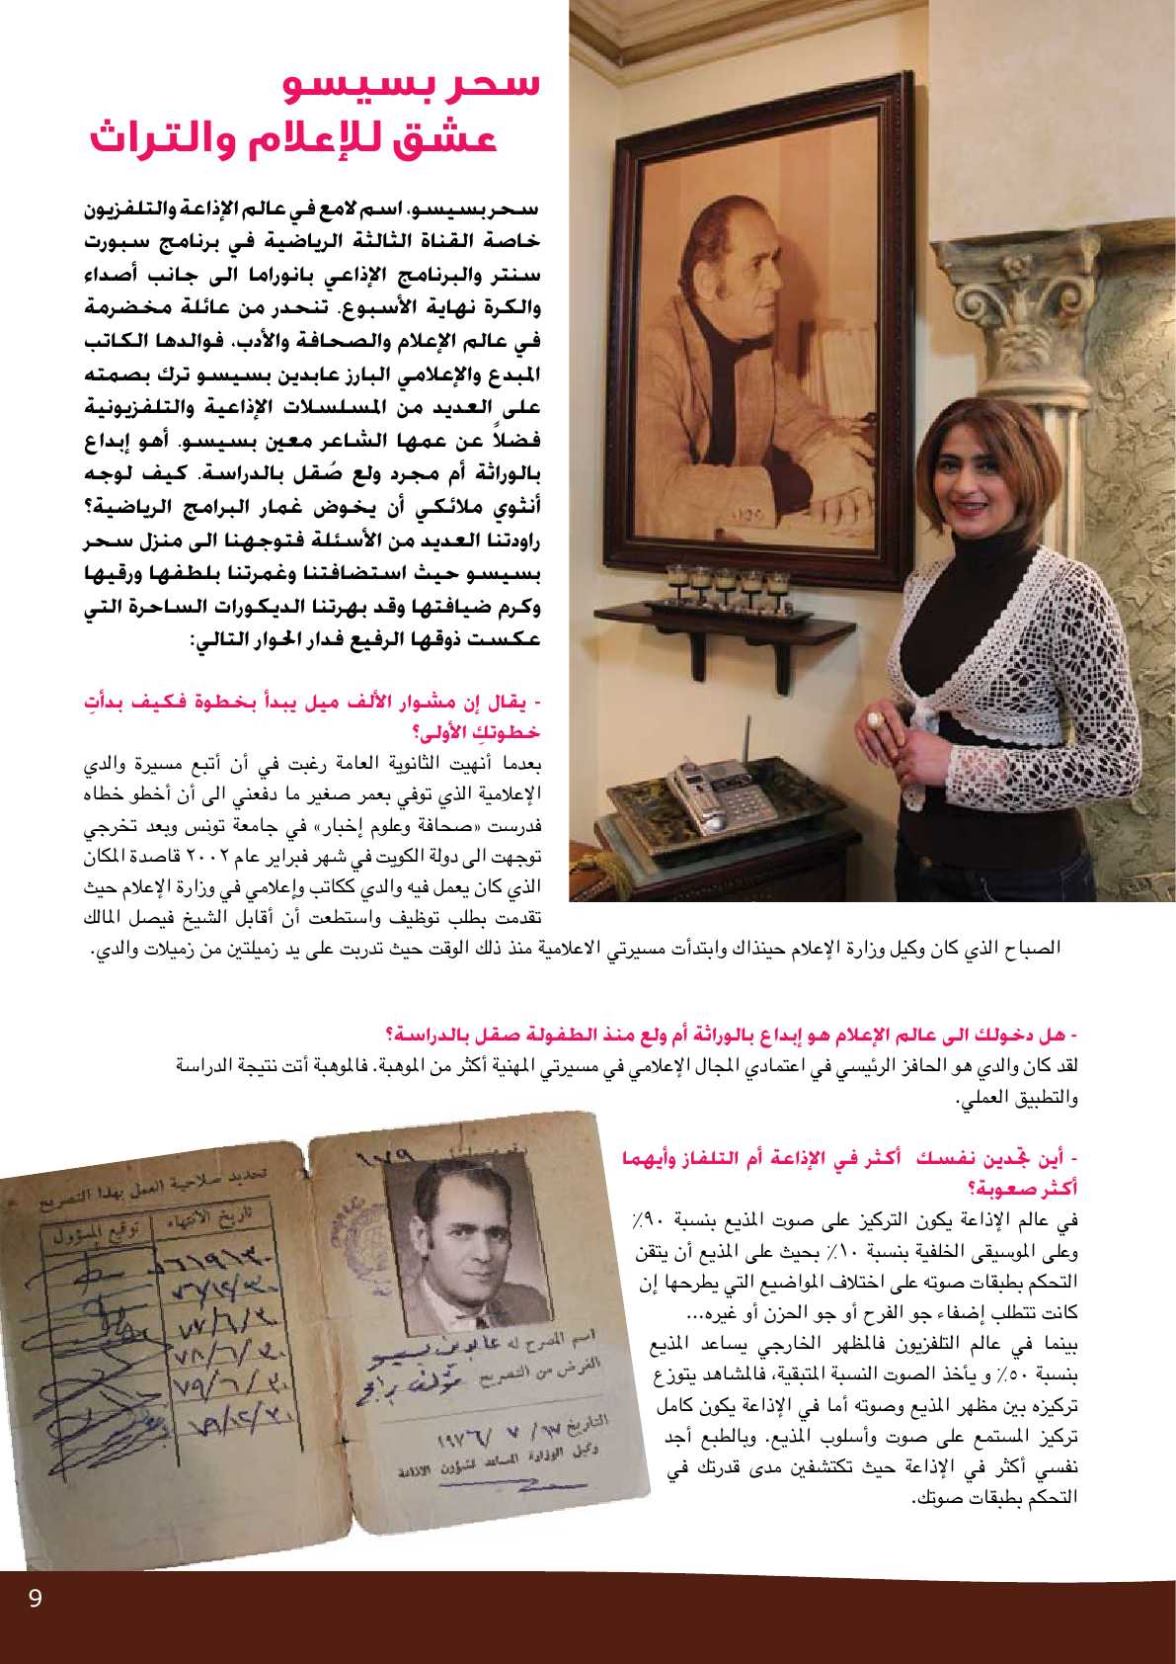 سحر بسيسو
عشق للإعلام والتراث
سحر بسيسو، اسم لامع في عالم الإذاعة والتلفزيون
خاصة القناة الثالثة الرياضية في برنامج سبورت
سنتر والبرنامج الإذاعي بانوراما الى جانب أصداء
والكرة نهاية الأسبوع. تنحدر من عائلة مخضرمة
في عالم الإعلام والصحافة والأدب، فوالدها الكاتب
المبدع والإعلامي البارز عابدين بسيسو ترك بصمته
على العديد من المسلسلات الإذاعية والتلفزيونية
فضلاً عن عمها الشاعر معين بسيسو. أهو إبداع
بالوراثة أم مجرد ولع صُقل بالدراسة. كيف لوجه
أنثوي ملائكي أن يخوض غمار البرامج الرياضية؟
راودتنا العديد من الأسئلة فتوجهنا الى منزل سحر
بسيسو حيث استضافتنا وغمرتنا بلطفها ورقيها
وكرم ضيافتها وقد بهرتنا الديكورات الساحرة التي
عكست ذوقها الرفيع فدار الحوار التالي:
- يقال إن مشوار الألف ميل يبدأ بخطوة فكيف بدأتِ
خطوتكِ الأولى؟
بعدما أنهيت الثانوية العامة رغبت في أن أتبع مسيرة والدي
الإعلامية الذي توفي بعمر صغير ما دفعني الى أن أخطو خطاه
فدرست «صحافة وعلوم إخبار» في جامعة تونس وبعد تخرجي
توجهت الى دولة الكويت في شهر فبراير عام ٢٠٠٢ قاصدة المكان
الذي كان يعمل فيه والدي ككاتب وإعلامي في وزارة الإعلام حيث
تقدمت بطلب توظيف واستطعت أن أقابل الشيخ فيصل المالك
الصباح الذي كان وكيل وزارة الإعلام حينذاك وابتدأت مسيرتي الاعلامية منذ ذلك الوقت حيث تدربت على يد زميلتين من زميلات والدي.
- هل دخولك الى عالم الإعلام هو إبداع بالوراثة أم ولع منذ الطفولة صقل بالدراسة؟
لقد كان والدي هو الحافز الرئيسي في اعتمادي المجال الإعلامي في مسيرتي المهنية أكثر من الموهبة. فالموهبة أتت نتيجة الدراسة
والتطبيق العملي.
- أين تجدين نفسك أكثر في الإذاعة أم التلفاز وأيهما
أكثر صعوبة؟
في عالم الإذاعة يكون التركيز على صوت المذيع بنسبة ٩٠٪
وعلى الموسيقى الخلفية بنسبة ١٠٪ بحيث على المذيع أن يتقن
التحكم بطبقات صوته على اختلاف المواضيع التي يطرحها إن
كانت تتطلب إضفاء جو الفرح أو جو الحزن أو غيره...
بينما في عالم التلفزيون فالمظهر الخارجي يساعد المذيع
بنسبة ٥٠٪ و يأخذ الصوت النسبة المتبقية، فالمشاهد يتوزع
تركيزه بين مظهر المذيع وصوته أما في الإذاعة يكون كامل
تركيز المستمع على صوت وأسلوب المذيع. وبالطبع أجد
نفسي أكثر في الإذاعة حيث تكتشفين مدى قدرتك في
التحكم بطبقات صوتك.
١٧٩
اسم المصرح له عابدين بسيسو
الغرض من التصريح مؤلف برامج
التاريخ ١٧/ ٧ /١٩٧٦
وكيل الوزارة المساعد لشؤون الاذاعة
تحديد صلاحية العمل بهذا التصريح
تاريخ الانتهاء توقيع المسؤول
٧٧/٦/٣٠
٧٨/٦/٣٠
٧٩/٦/٣٠
9